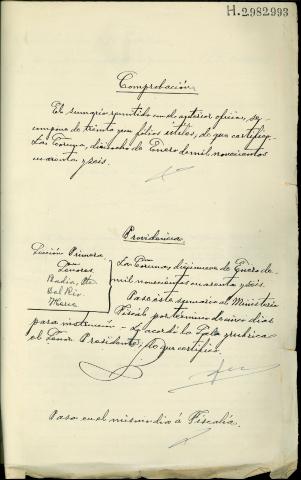 H.2982993
Comprobación.
El sumario remitido con el anterior oficio, se
compone de treinta y un folios útiles, de que certifico.
La Coruña, dieciocho de Enero de mil novecientos
cuarenta y seis.
Providencia
Sección Primera
Señores
Badia, Pte
Del Río
Mera
La Coruña, diecinueve de Enero de
mil novecientos cuarenta y seis.
Pase este sumario al Ministerio
Fiscal por término de cinco dias
para instrucción. Lo acordó la Sala y rubrica
el Señor Presidente; de que certifico.
Pasa en el mismo dia á Fiscalía.